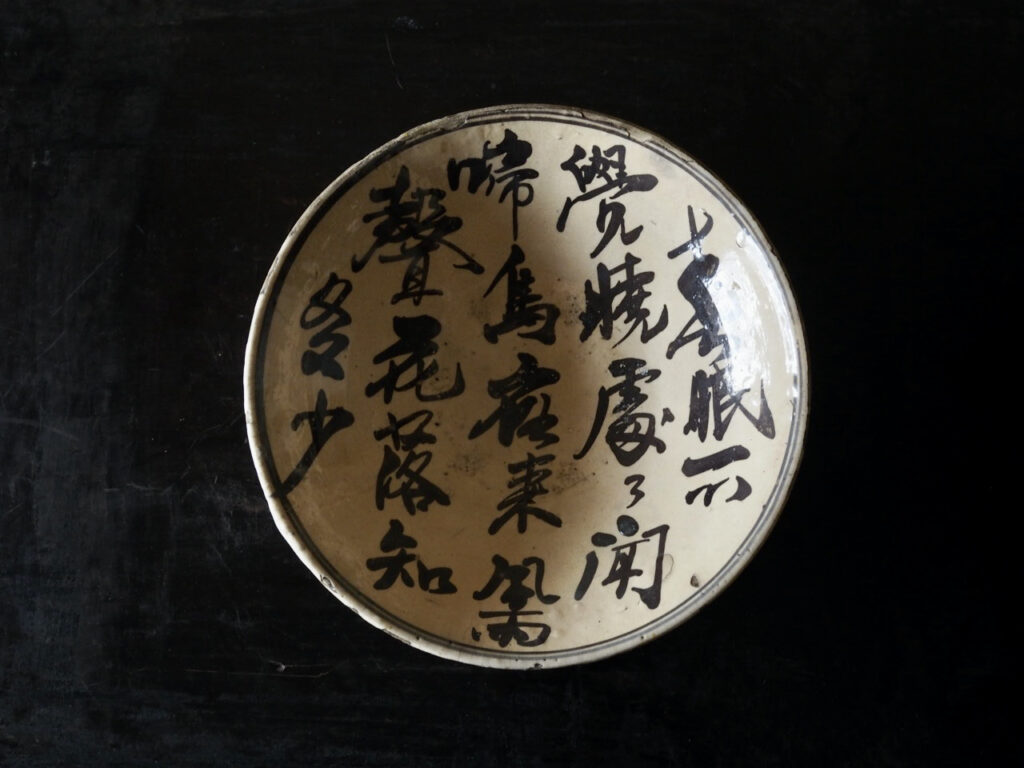 春眠不
覺曉處〻聞
啼鳥夜来風雨
聲花落知
多少